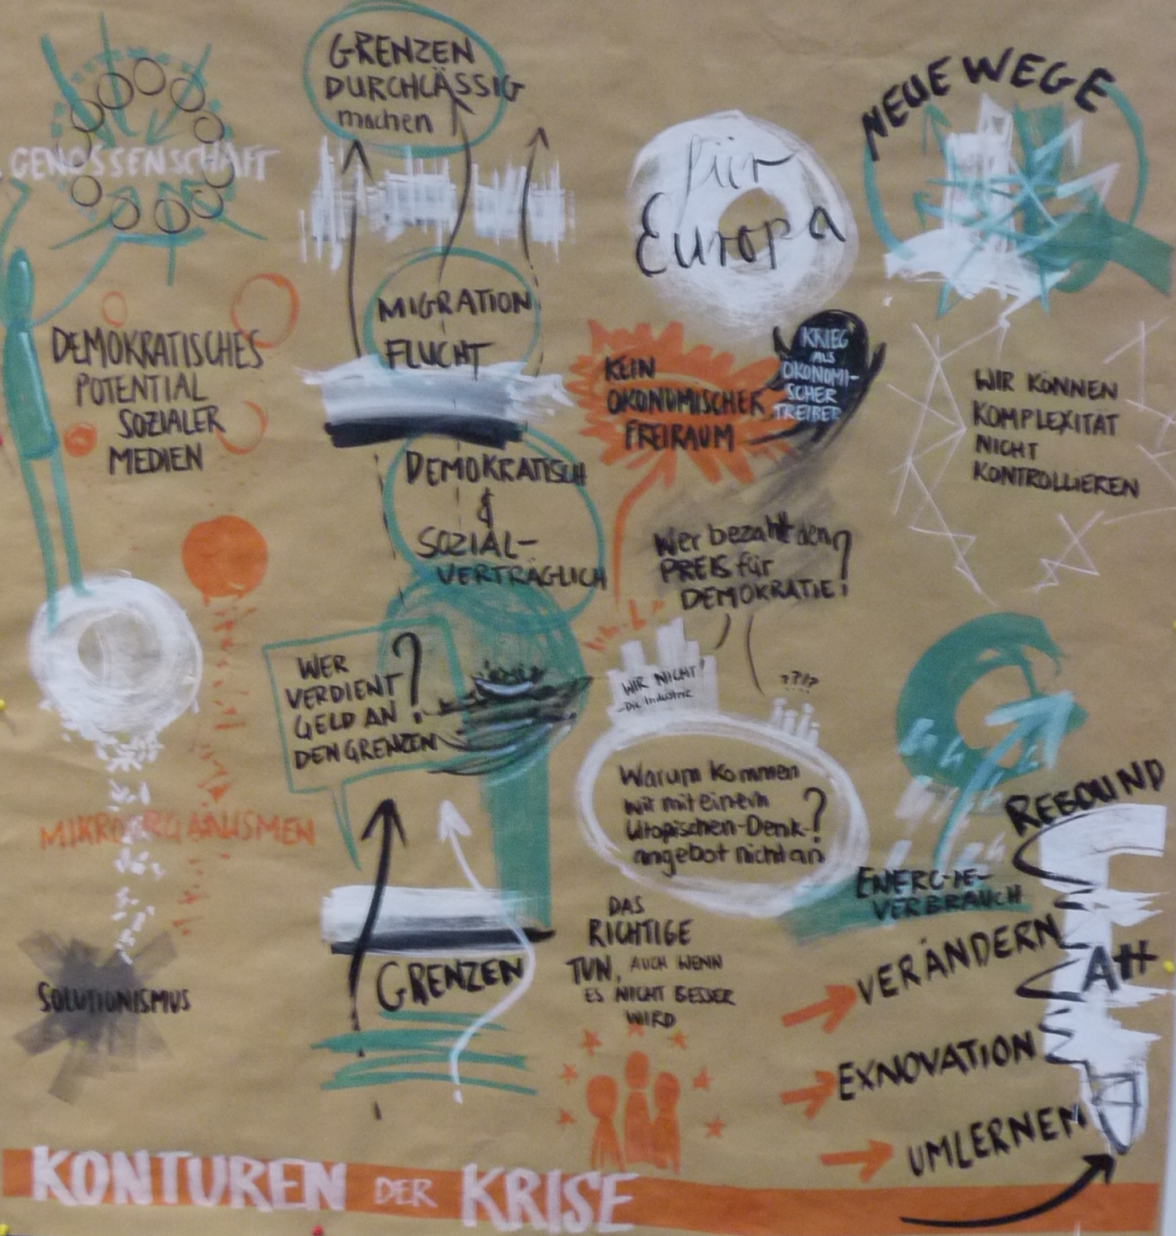 GENOSSENSCHAFT
DEMOKRATISCHES
POTENTIAL
SOZIALER
MEDIEN
MIKROORGANISMEN
SOLUTIONISMUS
GRENZEN
DURCHLÄSSIG
machen
MIGRATION
FLUCHT
DEMOKRATISCH
&
SOZIAL-
VERTRÄGLICH
WER
VERDIENT
GELD AN ?
DEN GRENZEN
GRENZEN
für
Europa
KEIN
ÖKONOMISCHER
FREIRAUM
KRIEG
ALS
ÖKONOMI-
SCHER
TREIBER
Wer bezahlt den
PREIS für
DEMOKRATIE?
WIR NICHT!
- Die Industrie
???!?
Warum kommen
wir mit einem
Utopischen-Denk-
angebot nicht an ?
DAS
RICHTIGE
TUN, AUCH WENN
ES NICHT BESSER
WIRD
NEUE WEGE
WIR KÖNNEN
KOMPLEXITÄT
NICHT
KONTROLLIEREN
REBOUND
ENERGIE-
VERBRAUCH
A++
VERÄNDERN
EXNOVATION
UMLERNEN
KONTUREN DER KRISE